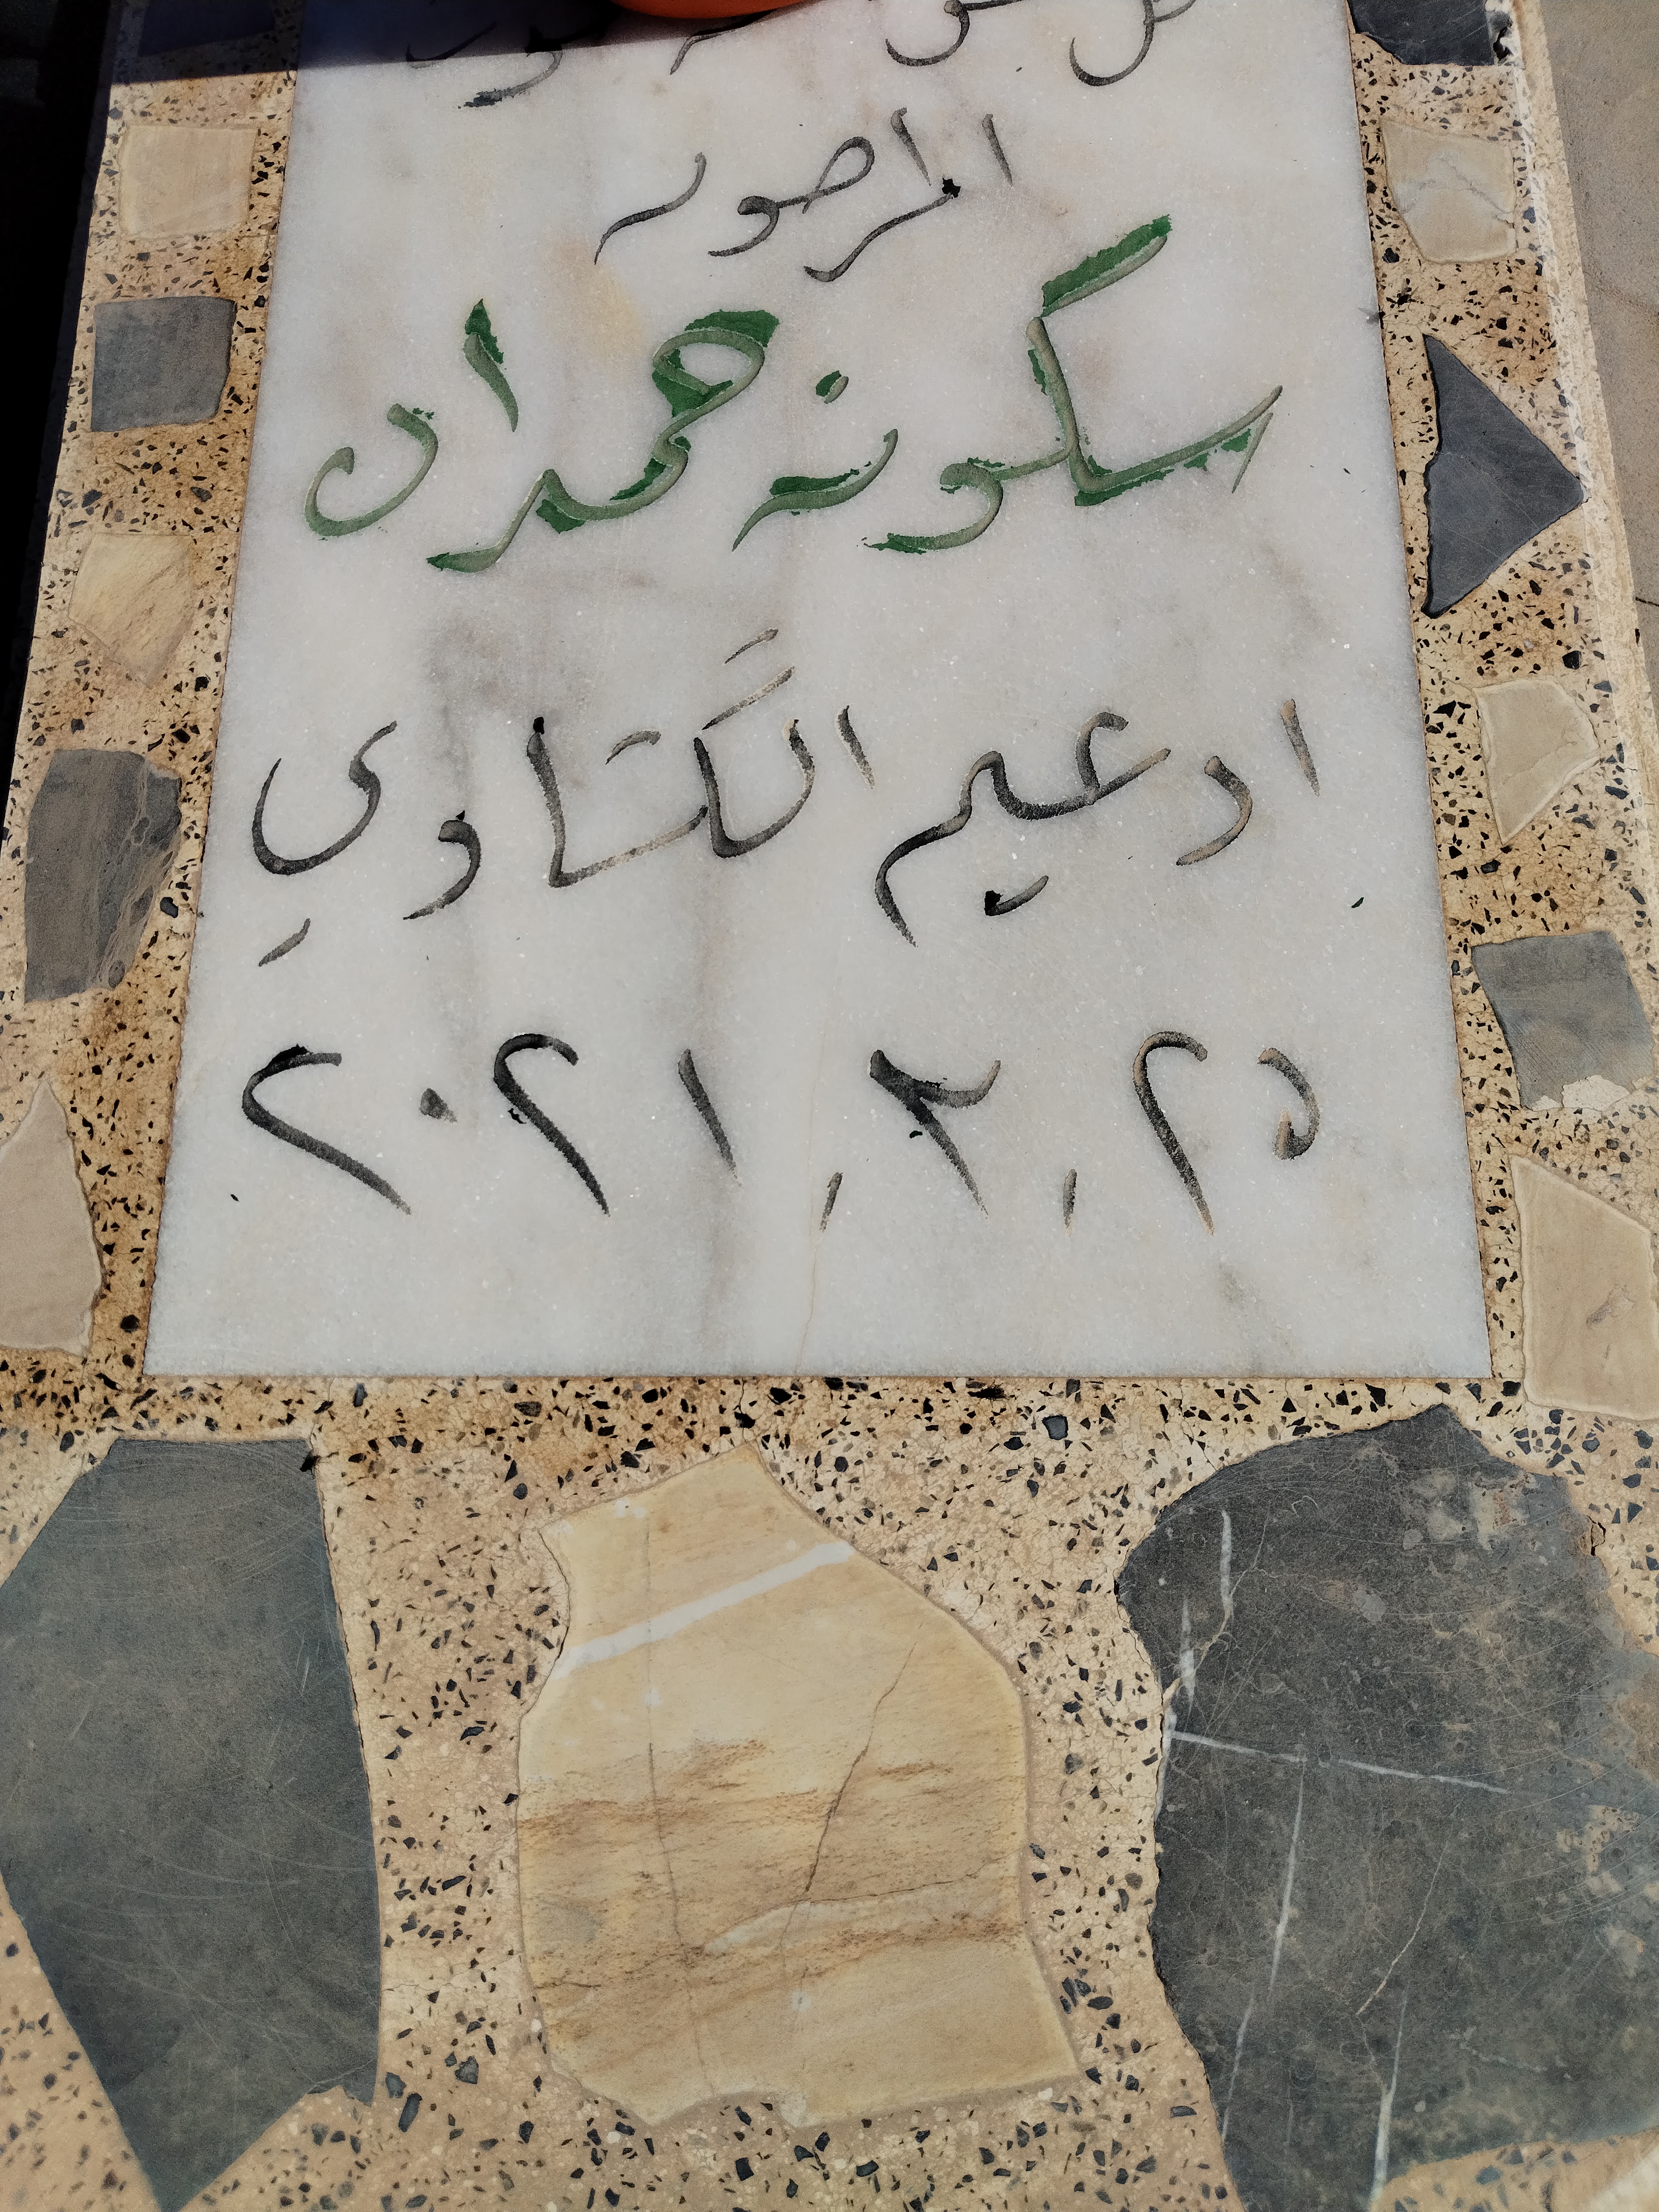 المرحومه
سكونه حمدان
ادعيم الگشاوي
٢٠٢١/٣/٢٥